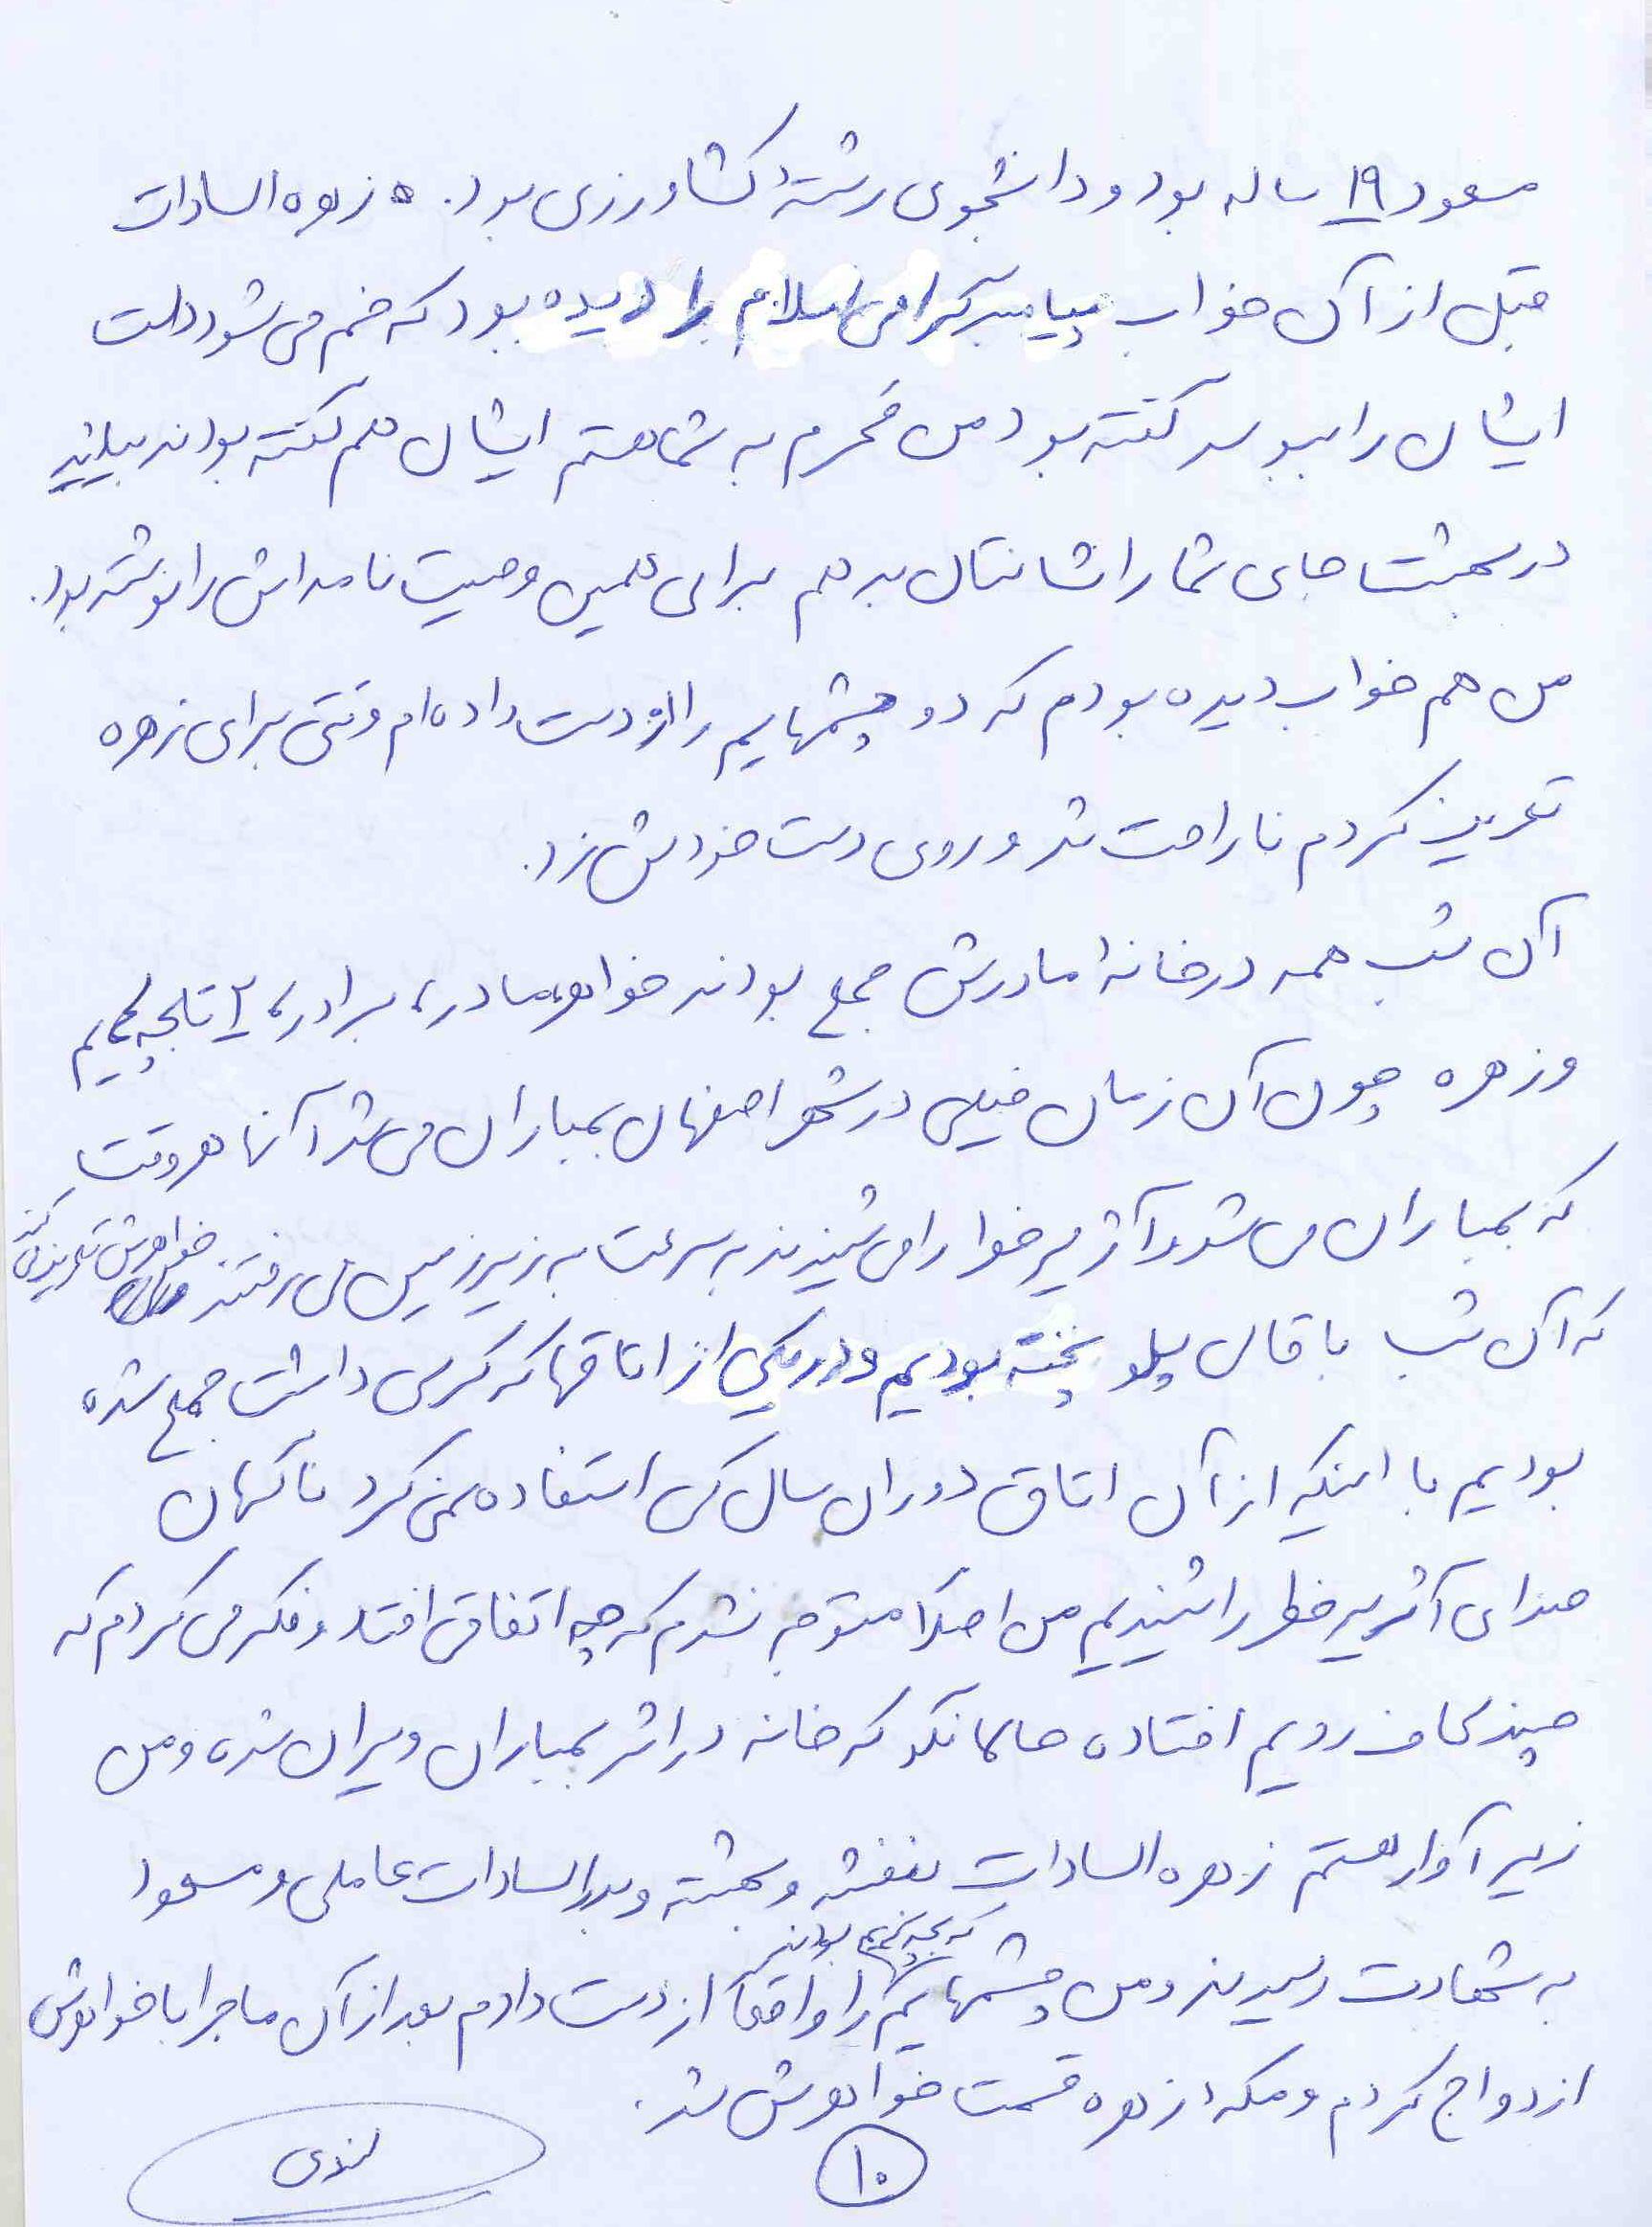 مسعود ۱۹ ساله بود و دانشجوی رشتهٔ کشاورزی بود. زهره السادات
قبل از آن خواب پیامبر گرامی اسلام را دیده بود که خم می شود دست
ایشان را ببوسد گفته بود من محرم به شما هستم ایشان هم گفته بودند بیایید
در بهشت جای شما را نشانتان بدهم برای همین وصیت نامه اش را نوشته بود.
من هم خواب دیده بودم که دو چشمهایم را از دست داده ام وقتی برای زهره
تعریف کردم ناراحت شد و روی دست خودش زد.
آن شب همه در خانهٔ مادرش جمع بودند خواهر، مادر، برادر، ۲ تا بچه هایم
و زهره چون آن زمان خیلی در شهر اصفهان بمباران می شد آنها هر وقت
که بمباران می شد و آژیر خطر را می شنیدند به سرعت به زیرزمین می رفتند خواهرش تعریف می کند
که آن شب باقالی پلو پخته بودیم و در یکی از اتاقها که کرسی داشت جمع شده
بودیم با اینکه از آن اتاق دوران سال کسی استفاده نمی کرد ناگهان
صدای آژیر خطر را شنیدیم من اصلاً متوجه نشدم که چه اتفاقی افتاد و فکر می کردم که
چند لحاف رویم افتاده حالا نگو که خانه در اثر بمباران ویران شده و من
زیر آوار هستم زهره السادات بنفشه و بهشته و بدرالسادات عاملی و مسعود
که بچه هایم بودند
به شهادت رسیدند و من چشمهایم را واقعاً از دست دادم بعد از آن ماجرا با خواهرش
ازدواج کردم و مکهٔ زهره قسمت خواهرش شد.
۱۰